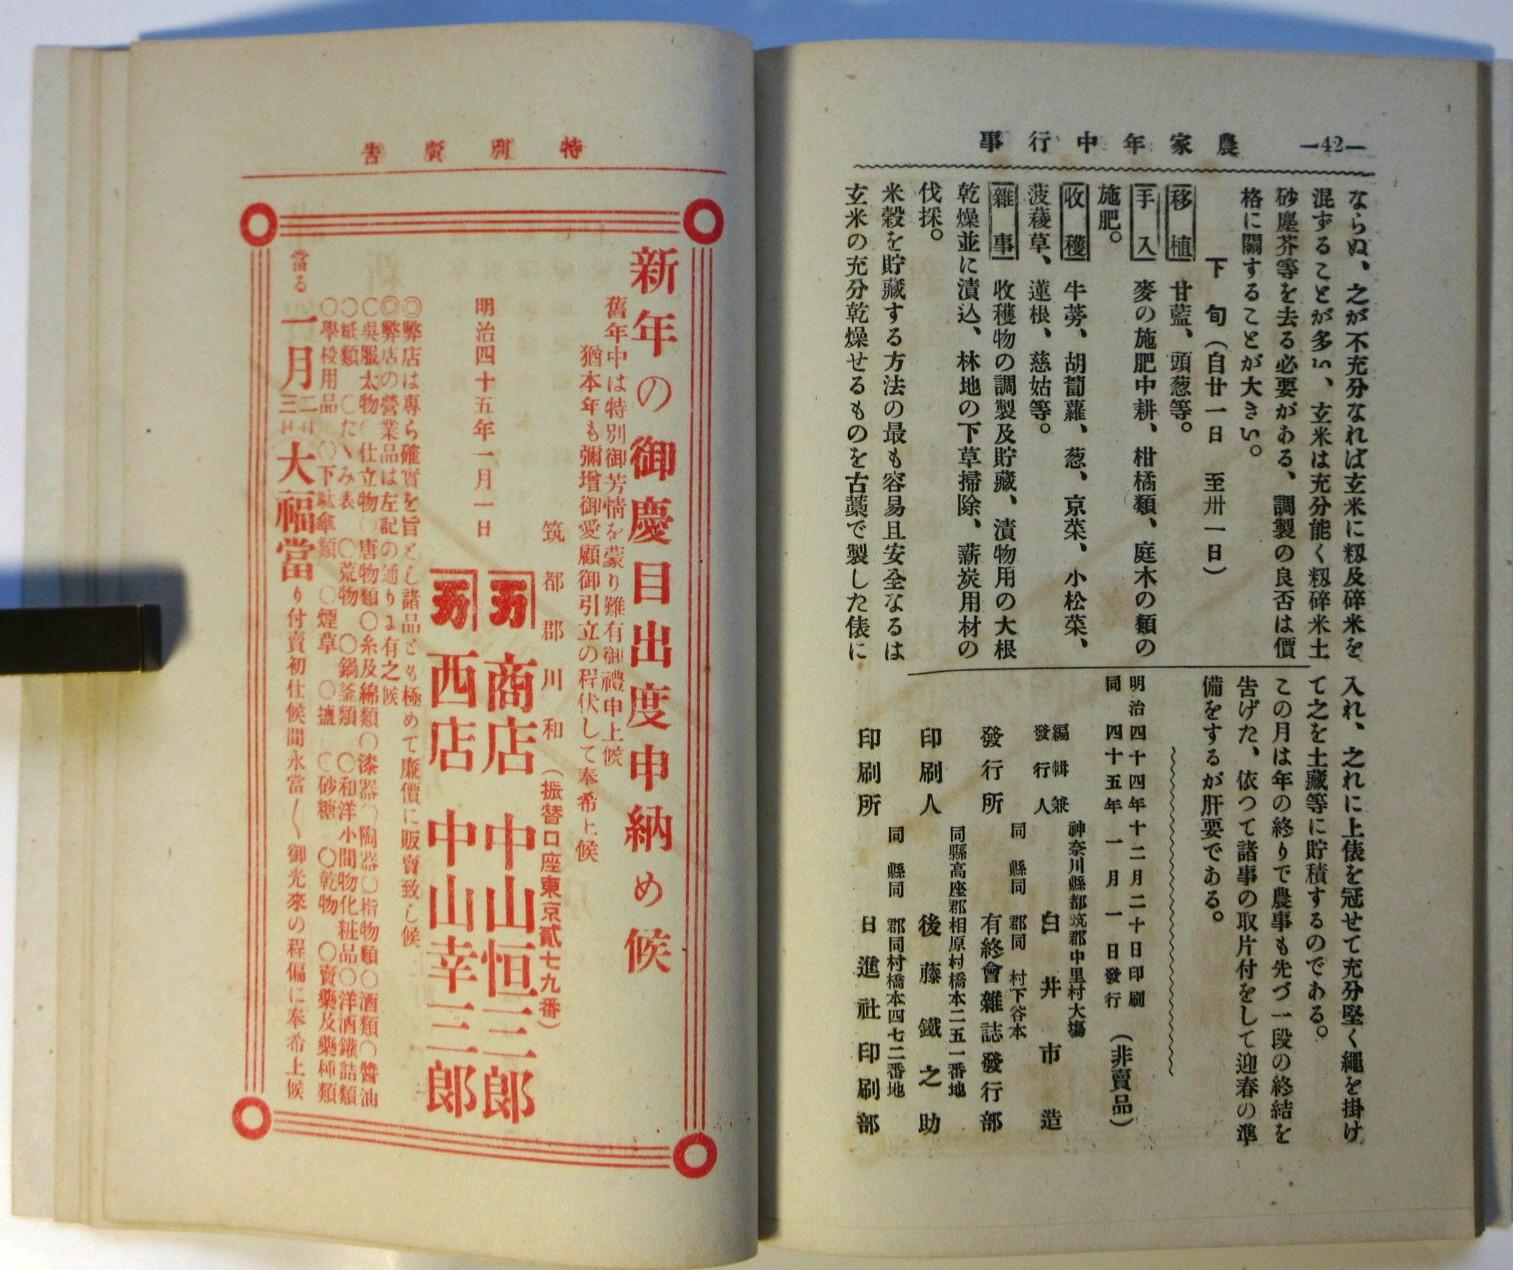 農家年中行事 —42—
ならぬ、之が不充分なれば玄米に籾及碎米を
混ずることが多い、玄米は充分能く籾碎米土
砂塵芥等を去る必要がある、調製の良否は價
格に關することが大きい。
下旬(自廿一日 至卅一日)
移植 甘藍、頭葱等。
手入 麥の施肥中耕、柑橘類、庭木の類の
施肥。
收穫 牛蒡、胡蔔蘿、葱、京菜、小松菜、
菠薐草、蓮根、慈姑等。
雜事 收穫物の調製及貯藏、漬物用の大根
乾燥並に漬込、林地の下草掃除、薪炭用材の
伐採。
米穀を貯藏する方法の最も容易且安全なるは
玄米の充分乾燥せるものを古藁で製した俵に
入れ、之れに上俵を冠せて充分堅く繩を掛け
て之を土藏等に貯積するのである。
この月は年の終りで農事も先づ一段の終結を
告げた、依つて諸事の取片付をして迎春の準
備をするが肝要である。
明治四十四年十二月二十日印刷
同 四十五年一月一日發行
(非賣品)
神奈川縣都筑郡中里村大塲
編輯兼
發行人 白井市造
同縣同郡同村下谷本
發行所 有終會雜誌發行部
同縣高座郡相原村橋本二五一番地
印刷人 後藤鐵之助
同縣同郡同村橋本四七二番地
印刷所 日進社印刷部
特別廣告
新年の御慶目出度申納め候
舊年中は特別御芳情を蒙り難有御禮申上候
猶本年も彌增御愛顧御引立の程伏して奉希上候
明治四十五年一月一日
筑都郡川和(振替口座東京貳七九番)
商店 中山恒三郎
西店 中山幸三郎
◎弊店は專ら確實を旨とし諸品とも極めて廉價に販賣致し候
◎弊店の營業品は左記の通りに有之候
〇吳服太物〇仕立物〇唐物類〇糸及綿類〇漆器〇陶器〇指物類〇酒類〇醬油
〇紙類〇たゝみ表〇荒物〇鍋釜類〇和洋小間物化粧品〇洋酒鑵詰類
〇學校用品〇下駄傘類〇煙草〇鹽〇砂糖〇乾物〇賣藥及藥種類
當る一月二日三日大福當り付賣初仕候間永當〱御光來の程偏に奉希上候